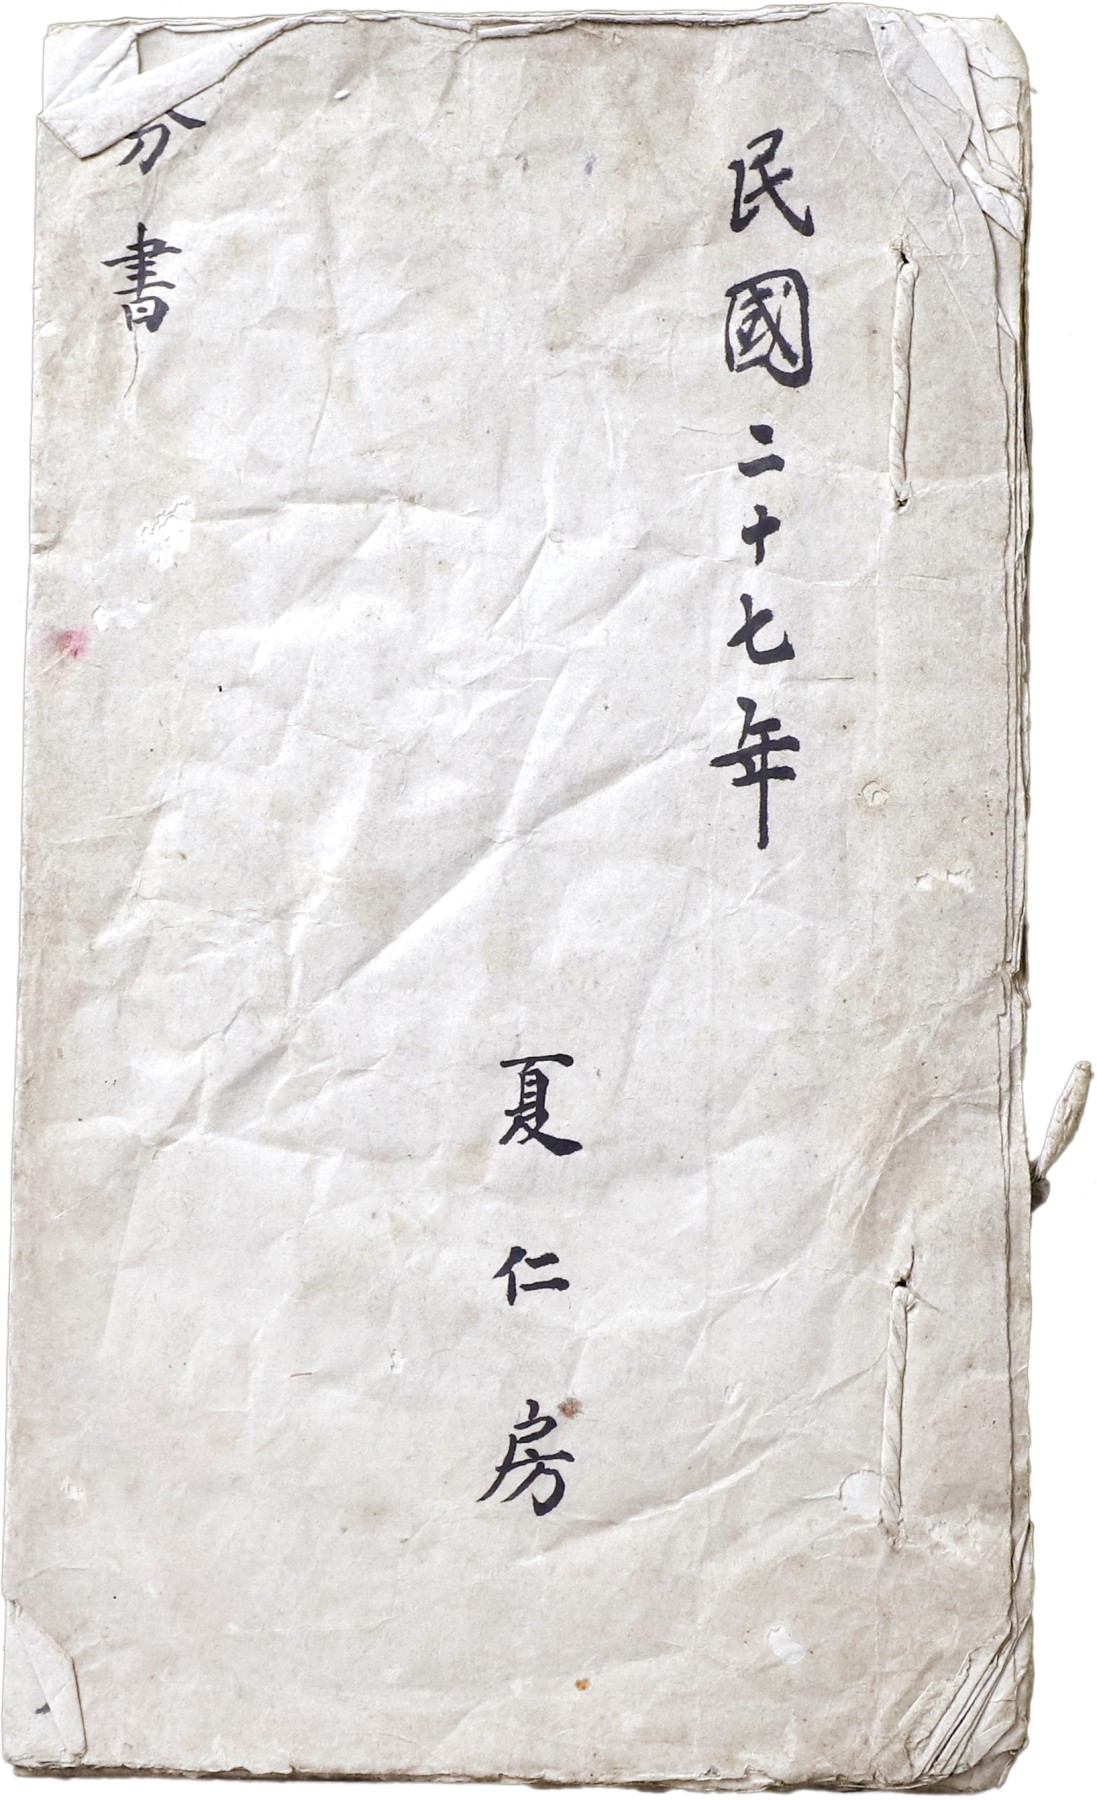 民國二十七年
夏仁房
分書